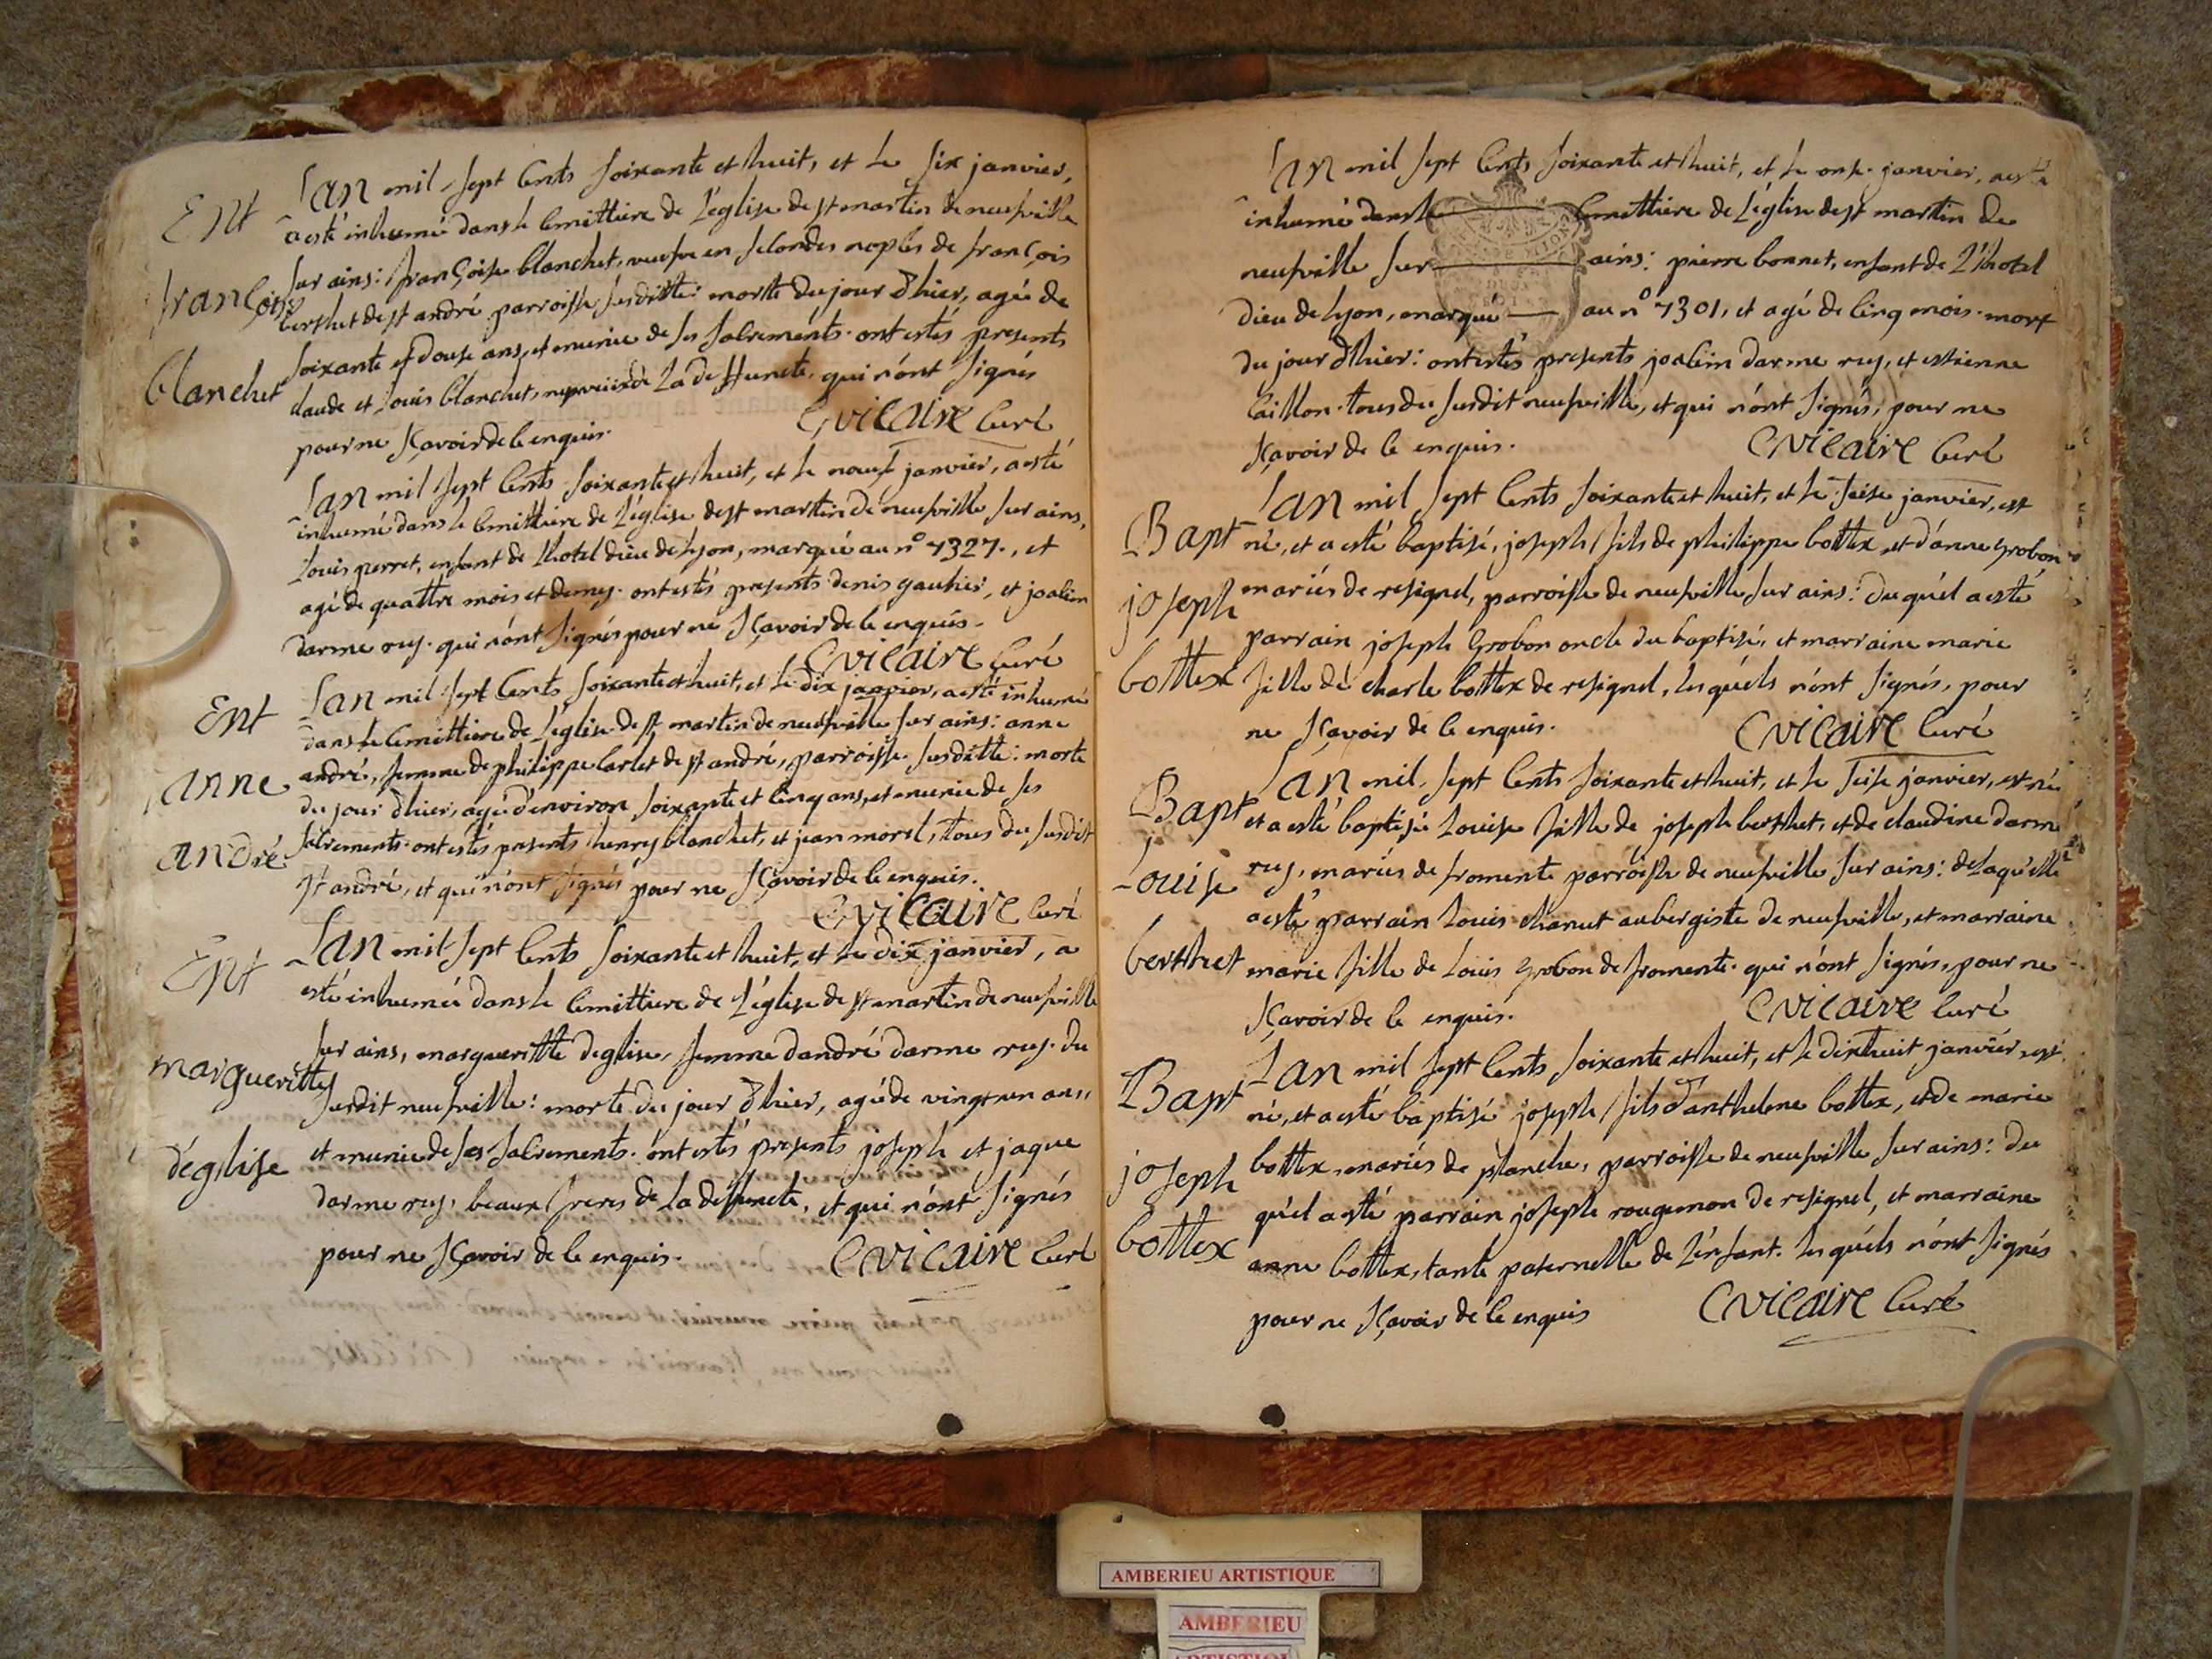 Ent
françoise
blanchet
Lan mil sept cents soixante et huit, et le six janvier,
a esté inhumé dans le cimittiere de L'eglise de st martin de neufville
sur ains: françoise blanchet, veufve en secondes nopces de françois
berthet de st andré parroisse susditte: morte du jour d'hier, agée de
soixante et douse ans, et munie de ses sacrements. ont estés presents
claude et Louis blanchet, nepveux de La deffuncte, qui n'ónt signés
pour ne sçavoir de ce enquis. C vicaire curé
Lan mil sept cents soixante et huit, et le neuf janvier, a esté
inhumé dans le cimittiere de L'eglise de st martin de neufville sur ains,
Louis perret, enfant de Lhotel dieu de Lyon, marqué au n° 7327., et
agé de quattre mois et demy. ont estés presents denis gauthier, et joacim
darme ruy. qui n'ónt signés pour ne sçavoir de ce enquis.
C vicaire curé
Ent
anne
andré
Lan mil sept cents soixante et huit, et le dix janvier, a esté inhumé
dans le cimittiere de L'eglise de st martin de neufville sur ains: anne
andré, femme de philippe carlet de st andré, parroisse susditte: morte
du jour d'hier, agée d'environ soixante et cinq ans, et munie de ses
sacrements. ont estés presents henry blanchet, et jean morel, tous du susdit
st andré, et qui n'ont signés pour ne sçavoir de ce enquis.
C vicaire curé
Ent
margueritte
d'église
Lan mil sept cents soixante et huit, et le dix janvier, a
esté inhumée dans le cimittiere de L'église de st martin de neufville
sur ains, margueritte deglise, femme dandré darme ruy. du
susdit neufville: morte du jour d'hier, agée de vingt un ans,
et munie de ses sacrements. ónt estés presents joseph et jaque
darme ruy, beaux freres de La deffuncte, et qui n'ónt signés
pour ne sçavoir de ce enquis. C vicaire curé
Lan mil sept cents soixante et huit, et le onse janvier, a esté
inhumé dans le cimittiere de L'église de st martin de
neufville sur ains: pierre bonnet, enfant de L'hotel
dieu de Lyon, marqué au n° 7301, et agé de cinq mois. mort
du jour d'hier: ont estés presents joacim darme ruy, et estienne
caillon. tous du susdit neufville, et qui n'ónt signés, pour ne
sçavoir de ce enquis. C vicaire curé
Bapt
joseph
bottex
Lan mil sept cents soixante et huit, et le seise janvier, est
né, et a esté baptisé, joseph fils de philippe bottex, et d'anne grobon
mariés de resignel, parroisse de neufville sur ains: du quél a esté
parrain joseph grobon oncle du baptisé, et marraine marie
fille de charle bottex de resignel, les quéls n'ónt signés, pour
ne sçavoir de ce enquis. C vicaire curé
Bapt
Louise
berthet
Lan mil sept cents soixante et huit, et le seise janvier, est née
et a esté baptisée Louise fille de joseph berthet, et de claudine darme
ruy, mariés de fromente parroisse de neufville sur ains: de Laquélle
a esté parrain Louis chanut aubergiste de neufville, et marraine
marie fille de Louis grobon de fromente. qui n'ónt signés, pour ne
sçavoir de ce enquis. C vicaire curé
Bapt
joseph
bottex
Lan mil sept cents soixante et huit, et le dixhuit janvier, est
né, et a esté baptisé joseph fils d'anthelme bottex, et de marie
bottex, mariés de planche, parroisse de neufville sur ains: du
quél a esté parrain joseph rougemon de resignel, et marraine
anne bottex, tante paternelle de L'enfant. les quéls n'ónt signés
pour ne sçavoir de ce enquis C vicaire curé
AMBERIEU ARTISTIQUE
AMBERIEU
ARTISTIQUE